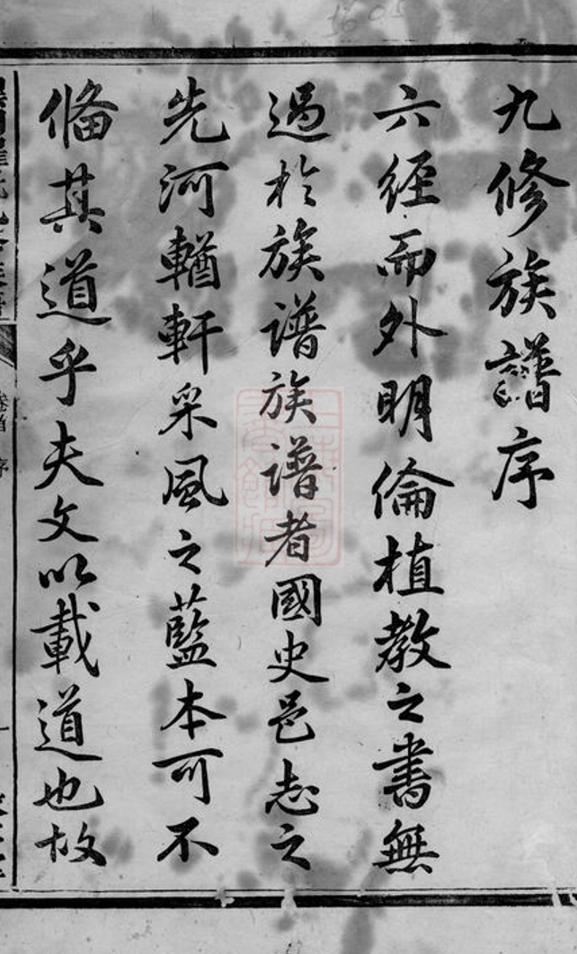 九修族譜序
六經而外明倫植教之書無
過於族譜族譜者國史邑志之
先河輶軒采風之藍本可不
備其道乎夫文以載道也故
卷首 序